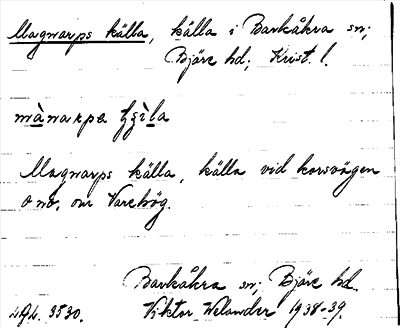 Magnarps källa, källa i Barkåkra sn;
Bjäre hd; Krist. l.
mànarpa
Magnarps källa, källa vid korsvägen
o no. om Varehög.
Barkåkra sn; Bjäre hd.
Viktor Welander 1938-39.
3530.